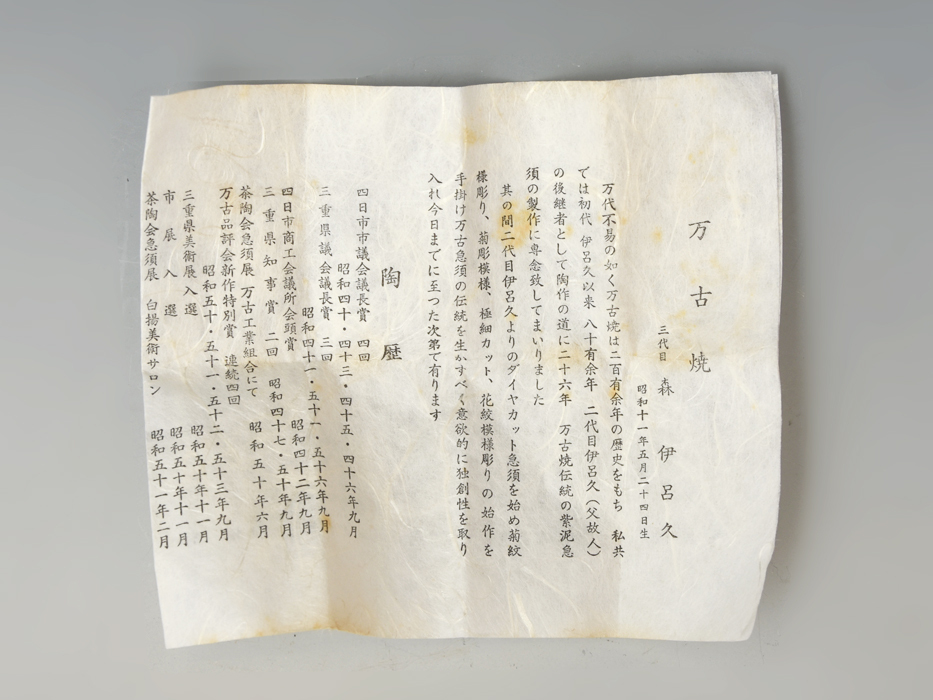 万古焼
三代目 森 伊呂久
昭和十一年五月二十四日生
万代不易の如く万古焼は二百有余年の歴史をもち 私共
では初代 伊呂久以来 八十有余年 二代目伊呂久(父故人)
の後継者として陶作の道に二十六年 万古焼伝統の紫泥急
須の製作に専念致してまいりました
其の間二代目伊呂久よりのダイヤカット急須を始め菊紋
様彫り、菊彫模様、極細カット、花紋模様彫りの始作を
手掛け万古急須の伝統を生かすべく意欲的に独創性を取り
入れ今日までに至つた次第で有ります
陶歴
四日市市議会議長賞 四回
昭和四十・四十三・四十五・四十六年九月
三重県議会議長賞 三回
昭和四十一・五十一・五十六年九月
四日市商工会議所会頭賞 昭和四十二年九月
三重県知事賞 二回 昭和四十七・五十年九月
茶陶会急須展 万古工業組合にて 昭和五十年六月
万古品評会新作特別賞 連続四回
昭和五十・五十一・五十二・五十三年九月
三重県美術展入選 昭和五十年十一月
市展入選 昭和五十年十一月
茶陶会急須展 白揚美術サロン 昭和五十一年二月